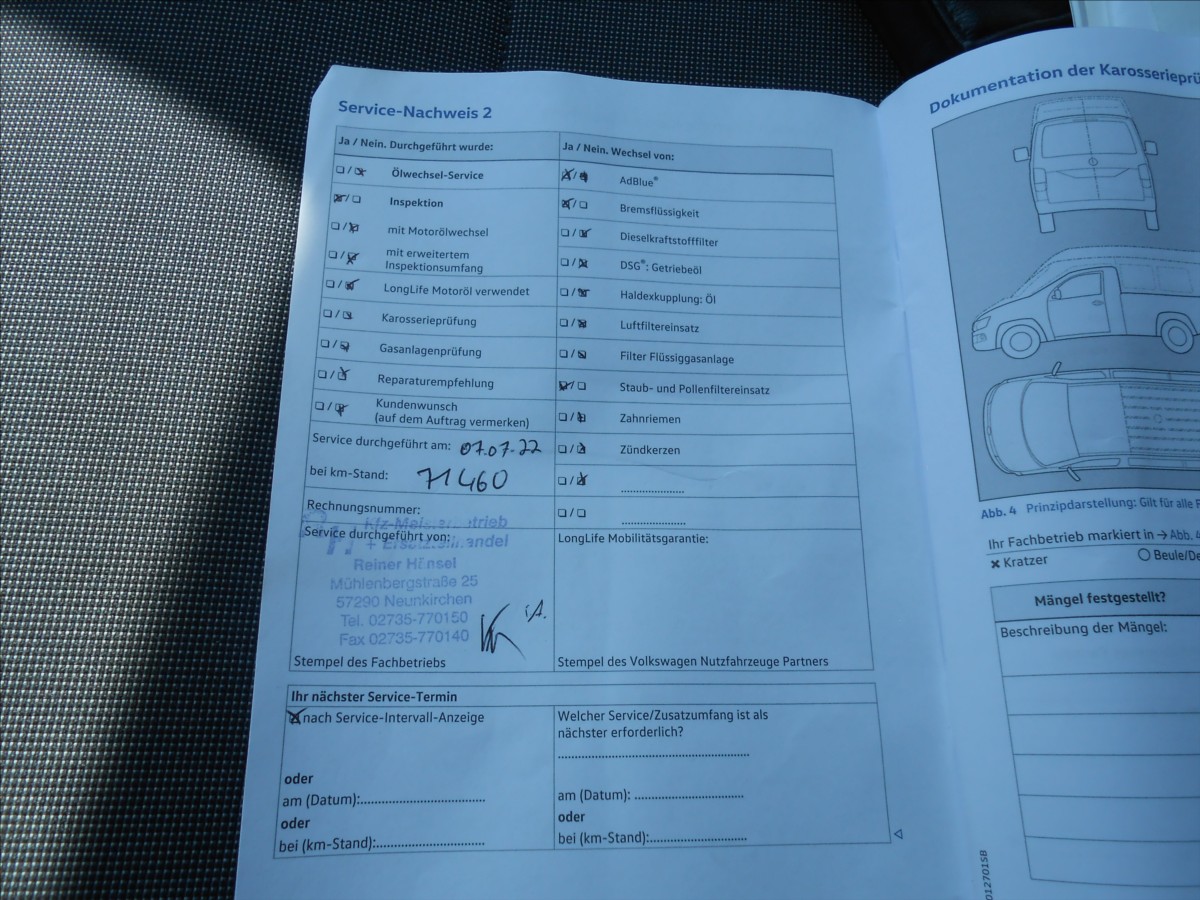 Service-Nachweis 2
Ja / Nein. Durchgeführt wurde:
Ölwechsel-Service
Inspektion
mit Motorölwechsel
mit erweitertem
Inspektionsumfang
LongLife Motoröl verwendet
Karosserieprüfung
Gasanlagenprüfung
Reparaturempfehlung
Kundenwunsch
(auf dem Auftrag vermerken)
Service durchgeführt am: 07.07-22
bei km-Stand: 71460
Rechnungsnummer:
Service durchgeführt von:
Reiner Hänsel
Mühlenbergstraße 25
57290 Neunkirchen
Tel. 02735-770150
Fax 02735-770140
i.A.
Stempel des Fachbetriebs
Ja / Nein. Wechsel von:
AdBlue®
Bremsflüssigkeit
Dieselkraftstofffilter
DSG®: Getriebeöl
Haldexkupplung: Öl
Luftfiltereinsatz
Filter Flüssiggasanlage
Staub- und Pollenfiltereinsatz
Zahnriemen
Zündkerzen
LongLife Mobilitätsgarantie:
Stempel des Volkswagen Nutzfahrzeuge Partners
Ihr nächster Service-Termin
nach Service-Intervall-Anzeige
oder
am (Datum):
oder
bei (km-Stand):
Welcher Service/Zusatzumfang ist als
nächster erforderlich?
am (Datum):
oder
bei (km-Stand):
Dokumentation der
Abb. 4 Prinzipdarstellung: Gilt für alle
Ihr Fachbetrieb markiert in → Abb. 4
× Kratzer
Mängel festgestellt?
Beschreibung der Mängel: